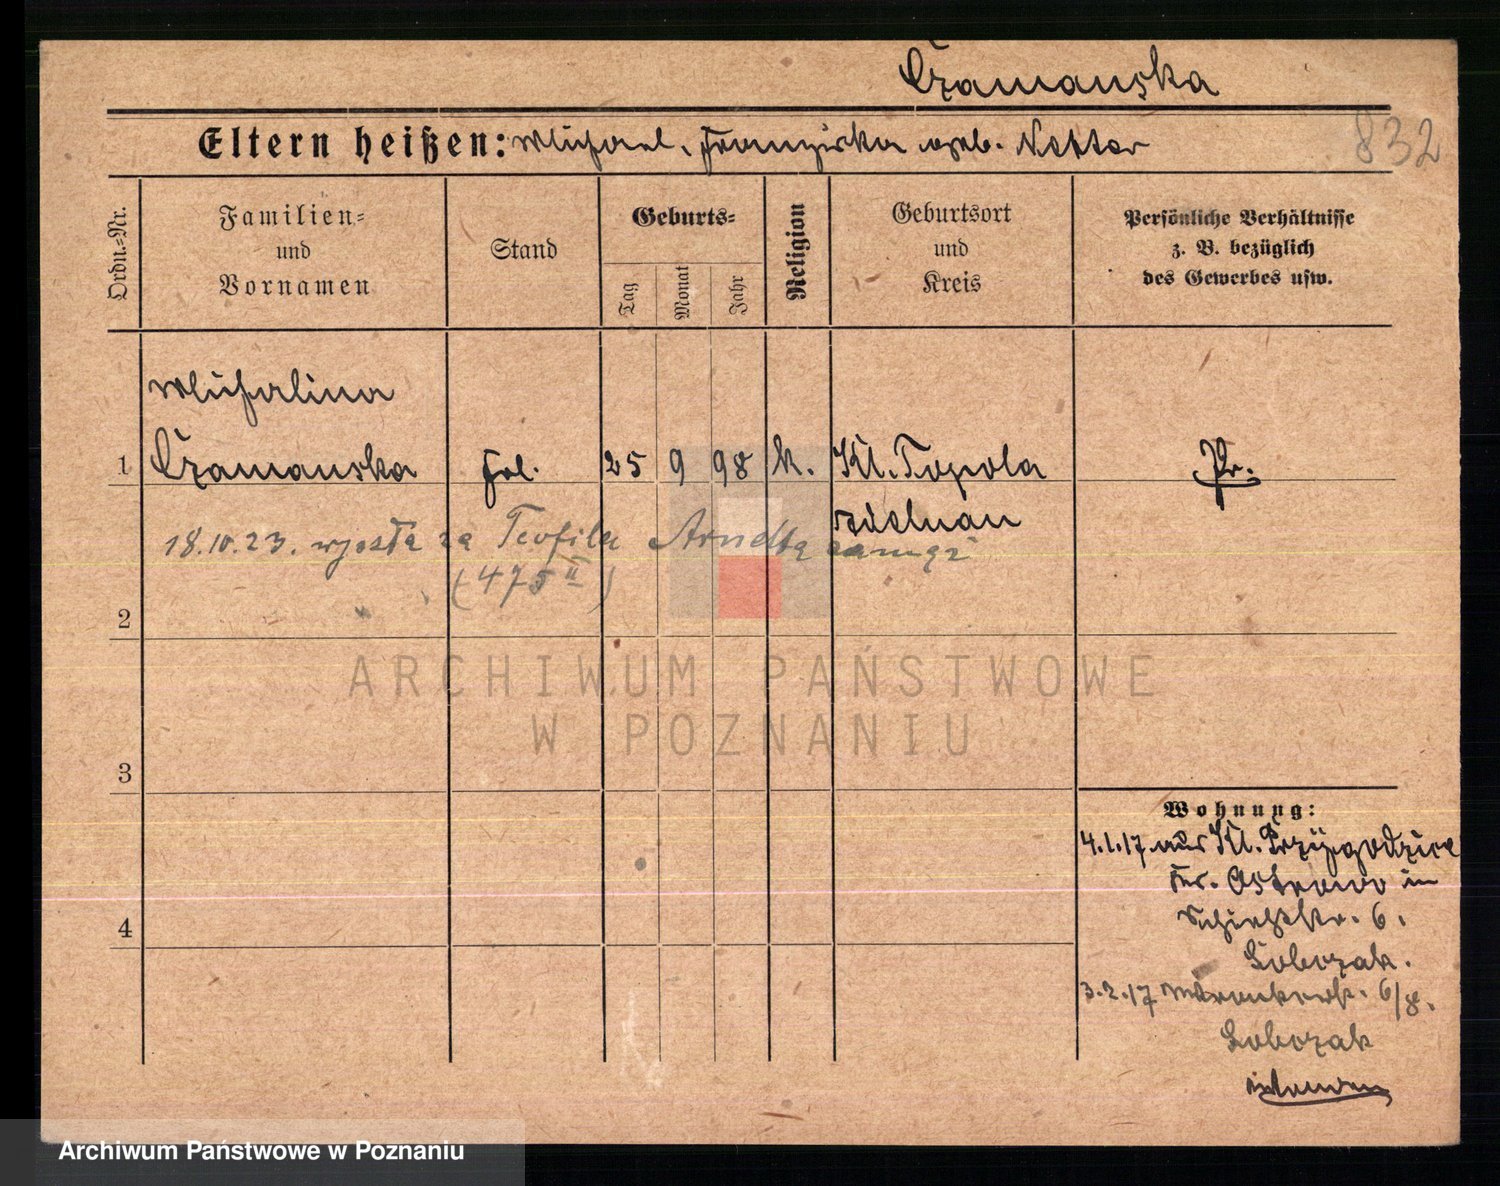 Czamanska
832
Eltern heißen: Michael, Franziska geb. Nektar
Ordn.=Nr.
Familien=
und
Vornamen
Stand
Geburts=
Tag
Monat
Jahr
Religion
Geburtsort
und
Kreis
Persönliche Verhältnisse
z. B. bezüglich
des Gewerbes usw.
Michalina
1 Czamanska Frl. 25 9 98 k. Kl. Topola Pr.
Adelnau
18.10.23. wyszła za Teofila Arndta zamąż
(475 II)
2
3
4
Wohnung:
4.1.17 aus Kl. Przygodzice
Kr. Ostrowo in
Schießstr. 6.
Sobczak.
3.2.17 Wronkerstr. 6/8.
Sobczak
ARCHIWUM PAŃSTWOWE
W POZNANIU
Archiwum Państwowe w Poznaniu